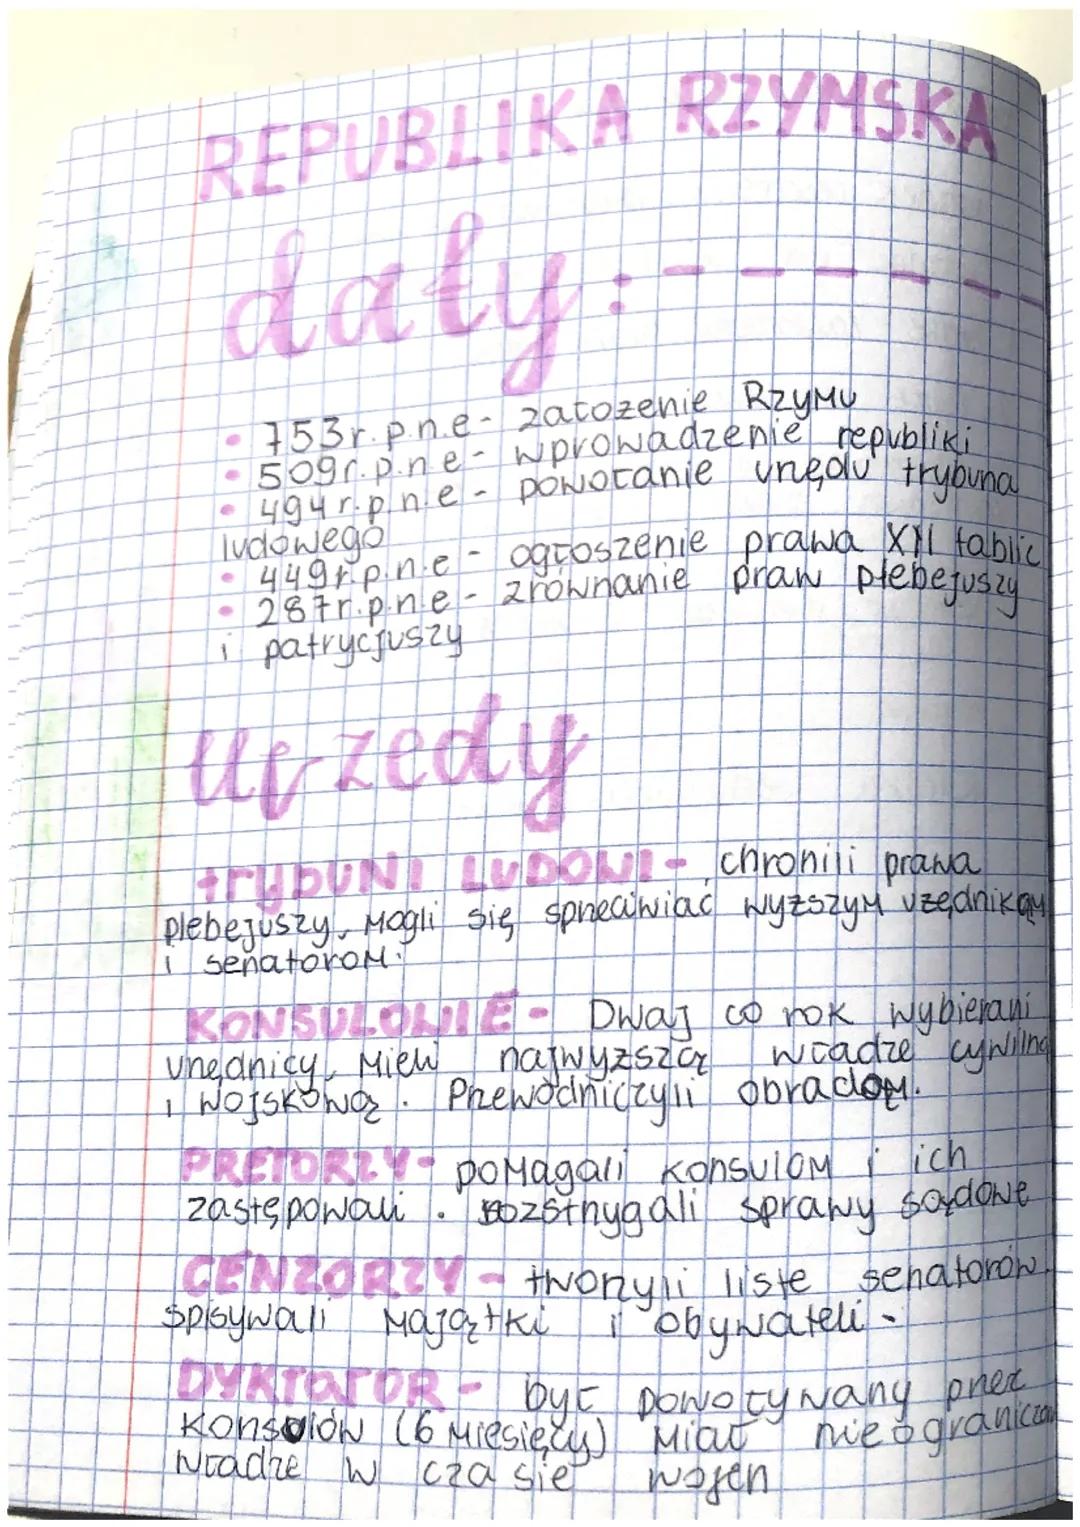 REPUBLIKA RZYMSKA
daty:------
• 753r.p.n.e- założenie Rzymu
• 509r.p.n.e- wprowadzenie republiki
• 494r.p.n.e- powołanie urzędu trybuna
ludowego
• 449r.p.n.e- ogłoszenie prawa XII tablic
• 287r.p.n.e- zrównanie praw plebejuszy
i patrycjuszy
Urzedy
trybuni LUDOWI- chronili prawa
plebejuszy, mogli się sprzeciwiać wyższym uzędnikom
i senatorom.
KONSULOWIE- Dwaj co rok wybierani
urzędnicy, mieli najwyższą władze cywilną
i wojskową. Przewodniczyli obradom.
PRETORZY- pomagali konsulom i ich
zastępowali. rozstrzygali sprawy sądowe
CENZORZY- tworzyli liste senatorów.
spisywali majątki i obywateli-
DYKTATOR- był powoływany przez
konsulów (6 miesięcy) miał nieograniczoną
władze w czasie wojen